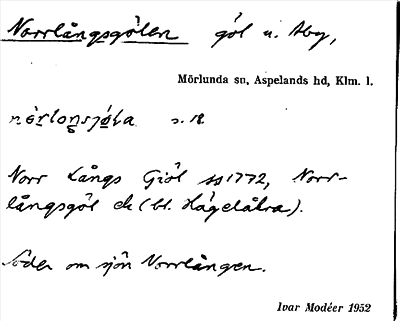 Norrlångsgölen göl u. Åby,
Mörlunda sn, Aspelands hd, Klm. l.
s. 18.
Norr Långs Giöl ss 1772, Norr-
långsgöl ek (bl. Hägelåkra).
Söder om sjön Norrlången.
Ivar Modéer 1952